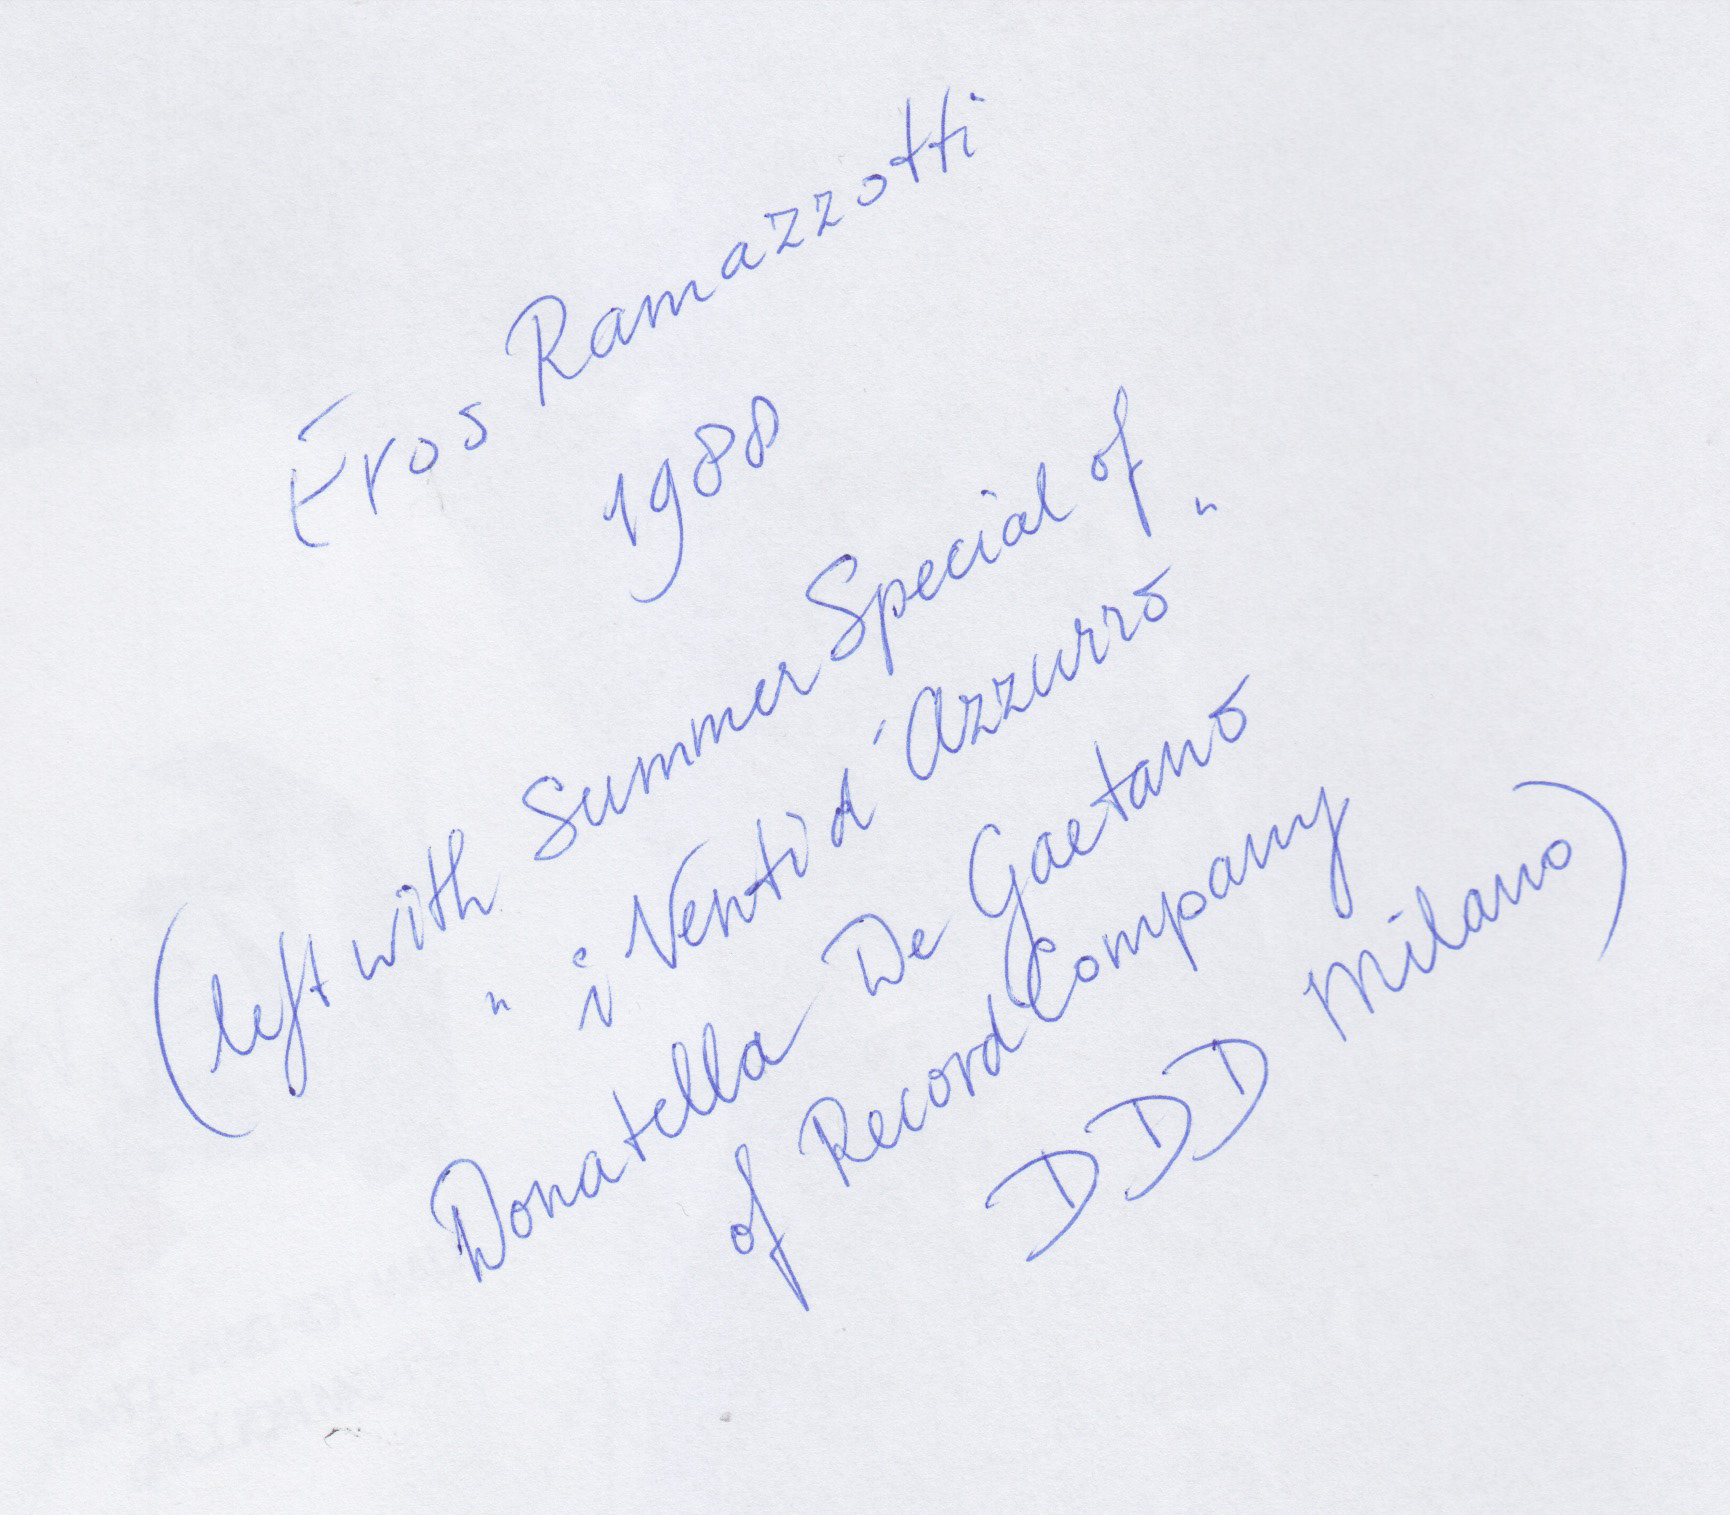 Eros Ramazzotti
1988
(left with Summer Special of
"i Venti d'Azzurro"
Donatella De Gaetano
of Record Company
DDD Milano)